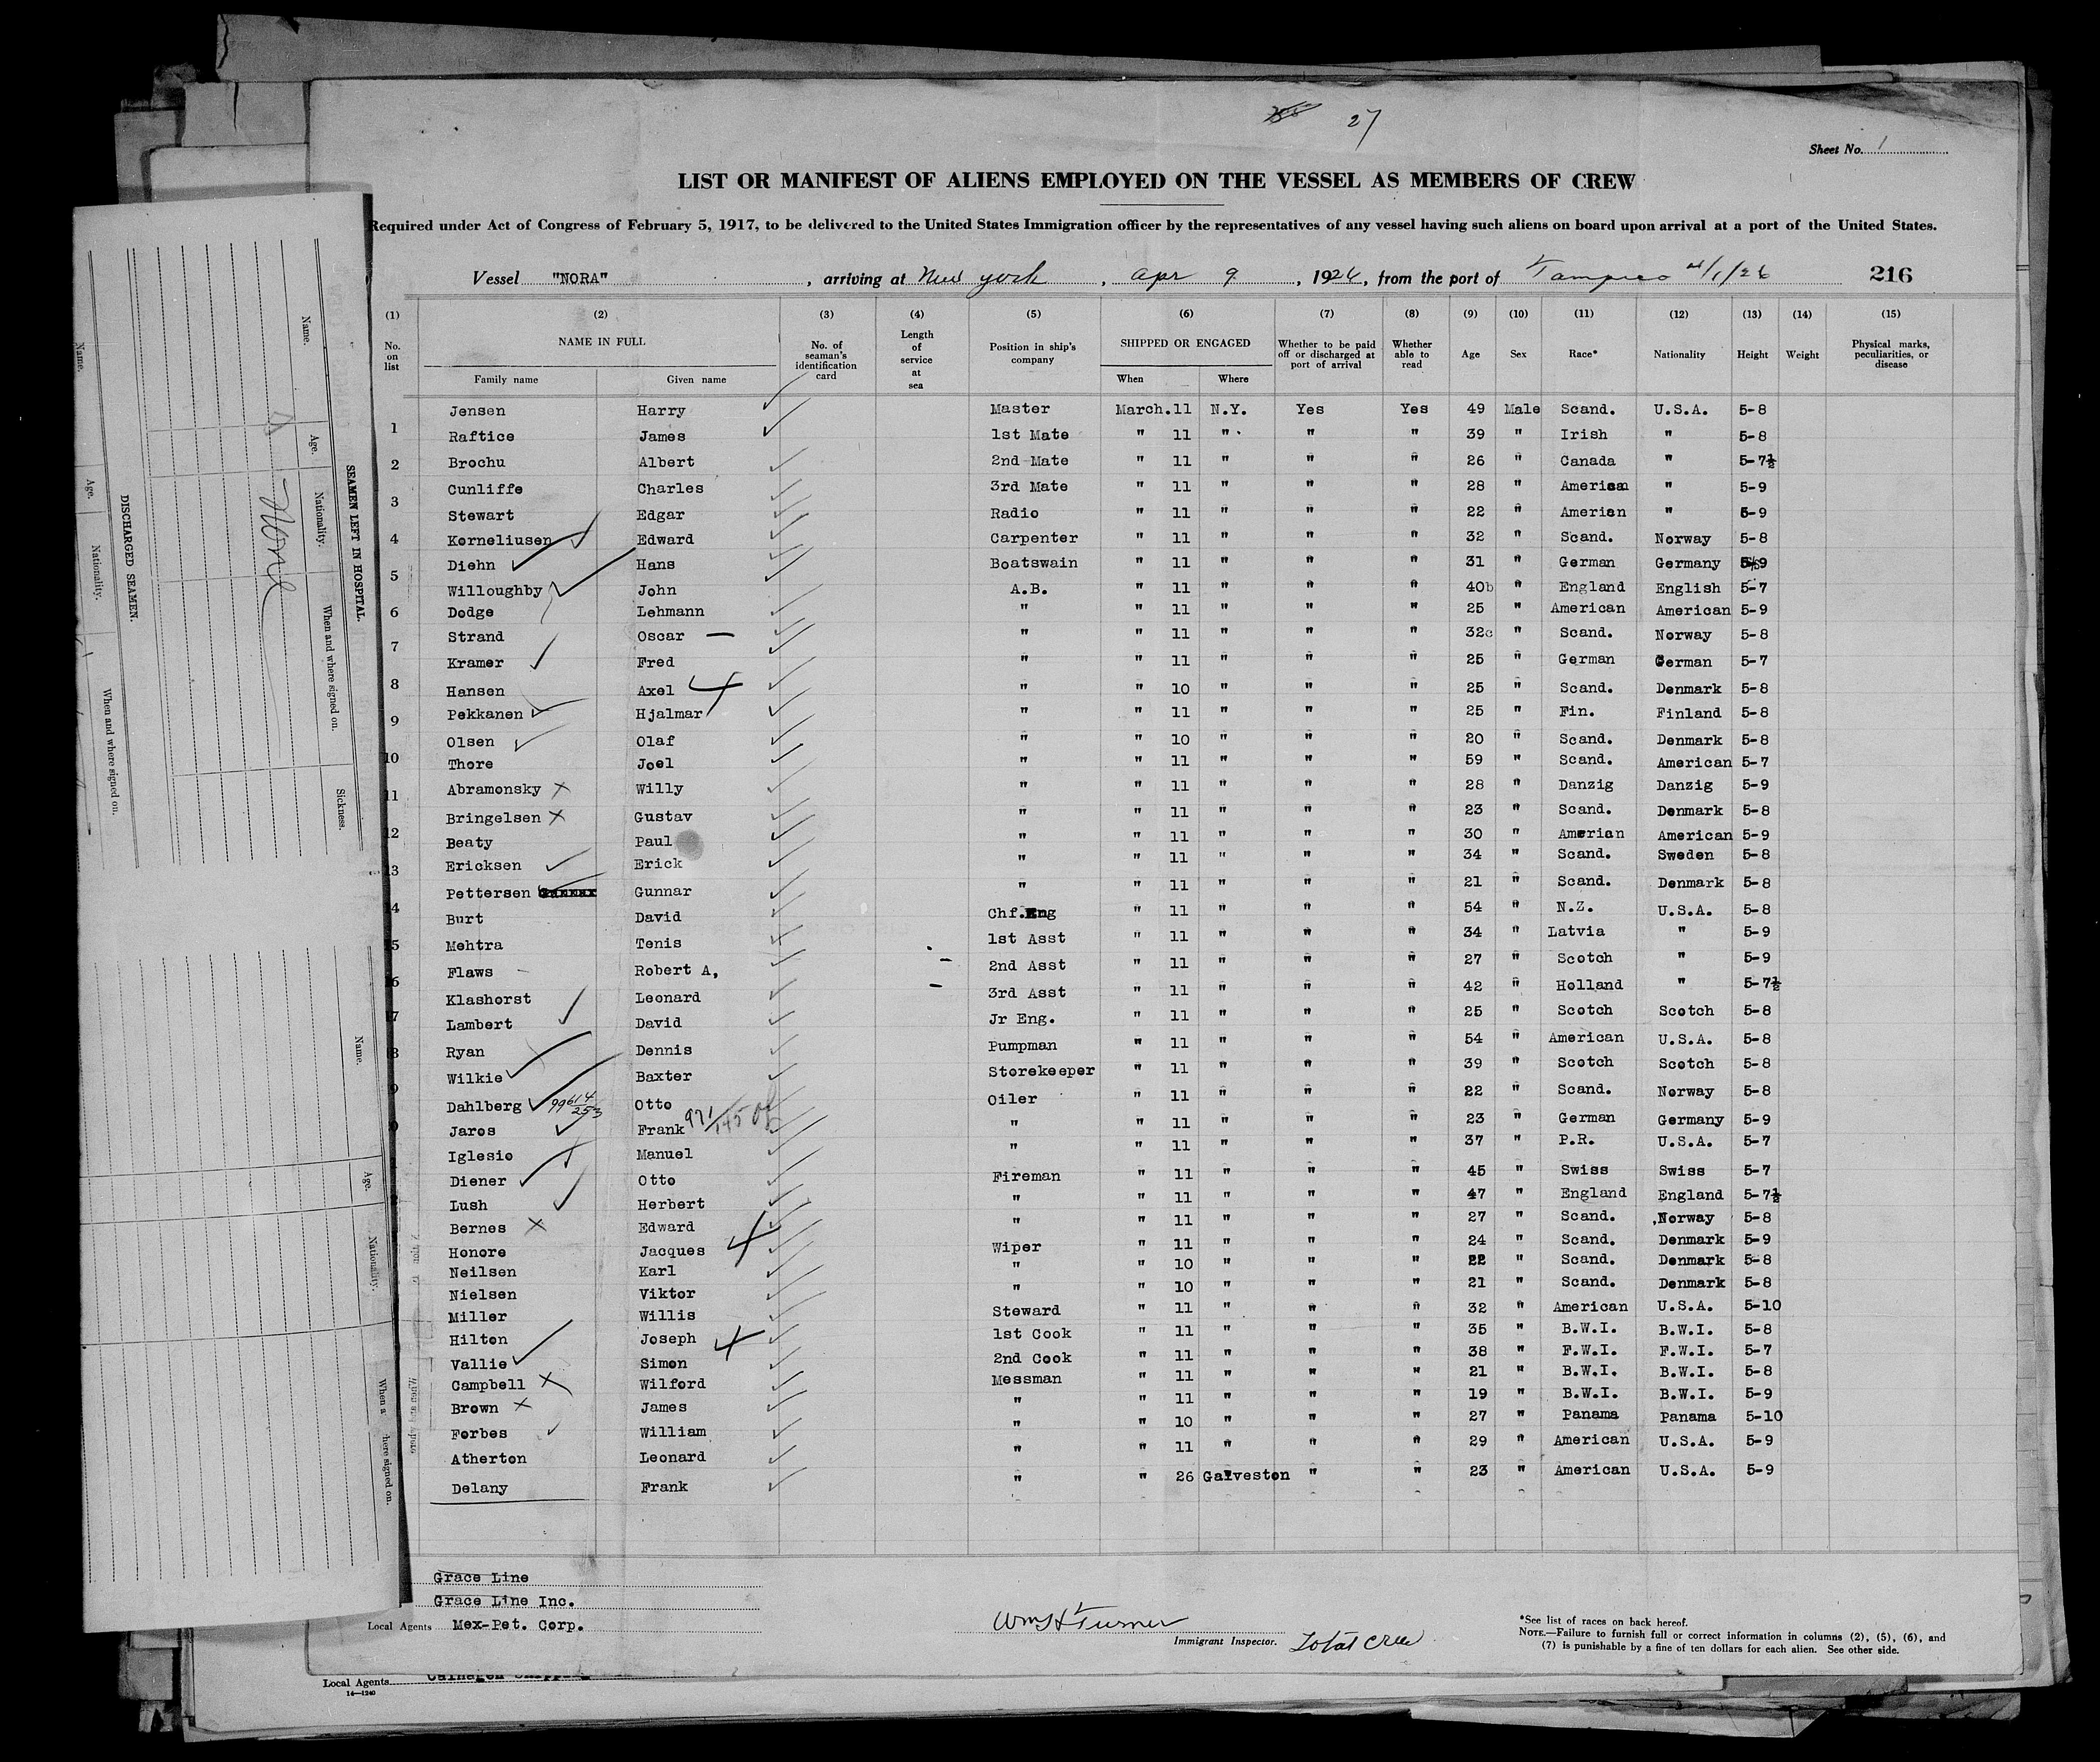 27
Sheet No. 1
LIST OR MANIFEST OF ALIENS EMPLOYED ON THE VESSEL AS MEMBERS OF CREW
Required under Act of Congress of February 5, 1917, to be delivered to the United States Immigration officer by the representatives of any vessel having such aliens on board upon arrival at a port of the United States.
Vessel "NORA" , arriving at New York , Apr 9 , 1926, from the port of Tampico 4/1/26 216
(1) (2) (3) (4) (5) (6) (7) (8) (9) (10) (11) (12) (13) (14) (15)
No. on list NAME IN FULL Family name Given name No. of seaman's identification card Length of service at sea Position in ship's company SHIPPED OR ENGAGED When Where Whether to be paid off or discharged at port of arrival Whether able to read Age Sex Race* Nationality Height Weight Physical marks, peculiarities, or disease
Jensen Harry Master March.11 N.Y. Yes Yes 49 Male Scand. U.S.A. 5-8
1 Raftice James 1st Mate " 11 " " " 39 " Irish " 5-8
2 Brochu Albert 2nd Mate " 11 " " " 26 " Canada " 5-7½
3 Cunliffe Charles 3rd Mate " 11 " " " 28 " American " 5-9
Stewart Edgar Radio " 11 " " " 22 " Amerien " 5-9
4 Korneliusen Edward Carpenter " 11 " " " 32 " Scand. Norway 5-8
Diehn Hans Boatswain " 11 " " " 31 " German Germany 5-9
5 Willoughby John A.B. " 11 " " " 40b " England English 5-7
6 Dodge Lehmann " " 11 " " " 25 " American American 5-9
7 Strand Oscar — " " 11 " " " 32c " Scand. Norway 5-8
Kramer Fred " " 11 " " " 25 " German German 5-7
8 Hansen Axel " " 10 " " " 25 " Scand. Denmark 5-8
9 Pekkanen Hjalmar " " 11 " " " 25 " Fin. Finland 5-8
Olsen Olaf " " 10 " " " 20 " Scand. Denmark 5-8
10 Thore Joel " " 11 " " " 59 " Scand. American 5-7
11 Abramonsky Willy " " 11 " " " 28 " Danzig Danzig 5-9
Bringelsen Gustav " " 11 " " " 23 " Scand. Denmark 5-8
12 Beaty Paul " " 11 " " " 30 " Amerian American 5-9
13 Ericksen Erick " " 11 " " " 34 " Scand. Sweden 5-8
Pettersen Gunnar " " 11 " " " 21 " Scand. Denmark 5-8
14 Burt David Chf.Eng " 11 " " " 54 " N.Z. U.S.A. 5-8
15 Mehtra Tenis 1st Asst " 11 " " " 34 " Latvia " 5-9
Flaws Robert A, 2nd Asst " 11 " " " 27 " Scotch " 5-9
16 Klashorst Leonard 3rd Asst " 11 " " " 42 " Holland " 5-7½
17 Lambert David Jr Eng. " 11 " " " 25 " Scotch Scotch 5-8
18 Ryan Dennis Pumpman " 11 " " " 54 " American U.S.A. 5-8
Wilkie Baxter Storekeeper " 11 " " " 39 " Scotch Scotch 5-8
Dahlberg 99 614/253 Otto Oiler " 11 " " " 22 " Scand. Norway 5-8
Jaros Frank 971/145 " " 11 " " " 23 " German Germany 5-9
Iglesio Manuel " " 11 " " " 37 " P.R. U.S.A. 5-7
Diener Otto Fireman " 11 " " " 45 " Swiss Swiss 5-7
Lush Herbert " " 11 " " " 47 " England England 5-7½
Bernes Edward " " 11 " " " 27 " Scand. Norway 5-8
Honore Jacques Wiper " 11 " " " 24 " Scand. Denmark 5-9
Neilsen Karl " " 10 " " " 22 " Scand. Denmark 5-8
Nielsen Viktor " " 10 " " " 21 " Scand. Denmark 5-8
Miller Willis Steward " 11 " " " 32 " American U.S.A. 5-10
Hilton Joseph 1st Cook " 11 " " " 35 " B.W.I. B.W.I. 5-8
Vallie Simon 2nd Cook " 11 " " " 38 " F.W.I. F.W.I. 5-7
Campbell Wilford Messman " 11 " " " 21 " B.W.I. B.W.I. 5-8
Brown James " " 11 " " " 19 " B.W.I. B.W.I. 5-9
Forbes William " " 10 " " " 27 " Panama Panama 5-10
Atherton Leonard " " 11 " " " 29 " American U.S.A. 5-9
Delany Frank " " 26 Galveston " " 23 " American U.S.A. 5-9
Grace Line
Grace Line Inc.
Local Agents Mex-Pet. Corp.
Wm H Turner
Immigrant Inspector.
Total Crew
*See list of races on back hereof.
NOTE.—Failure to furnish full or correct information in columns (2), (5), (6), and
(7) is punishable by a fine of ten dollars for each alien. See other side.
Local Agents
14—1240
SEAMEN LEFT IN HOSPITAL.
Name. Age. Nationality. When and where signed on. Sickness.
None
DISCHARGED SEAMEN.
Name. Age. Nationality. When and where signed on.
Name. Age. Nationality.